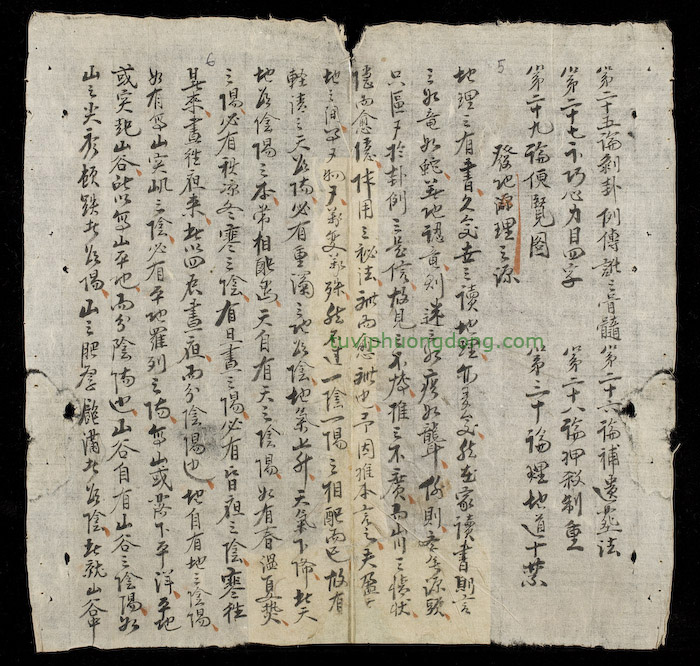 5
第二十五論剝卦例傳訛之骨髓 第二十六論補遺葬法
第二十七示巧心力目四字 第二十八論押殺制重
第二十九論便覽图 第三十論理地道十禁
發地源理之源
地理之有書久矣世之讀地理亦多矣然在家讀書則言
之如竜如蛇葬地認真則迷之如痴如聾何則無生源頭
只區〻於卦例之是信故見之不皆推之不廣而山川之情狀
隱而愈隱体用之秘法秘而愈秘也予因推本言之夫盈天
6
地之間萬〻物〻萬变萬殊然不過一陰一陽之相配而已故有
軽清之天為陽必有重濁之地為陰地氣上升天氣下降此天
地為陰陽之本常相配也天自有天之陰陽如有春溫夏焚
之陽必有秋凉冬寒之陰有日晝之陽必有昏夜之陰寒往
暑來晝往夜來此以四辰晝夜而分陰陽也地自有地之陰陽
如有高山突屼之陰必有平地羅列之陽高山或落下平洋平地
或突起山谷此以高山平地而分陰陽也山谷自有山谷之陰陽如
山之尖秀頓跌者為陽山之肥厚飽滿者為陰此就山谷中
tuviphuongdong.com